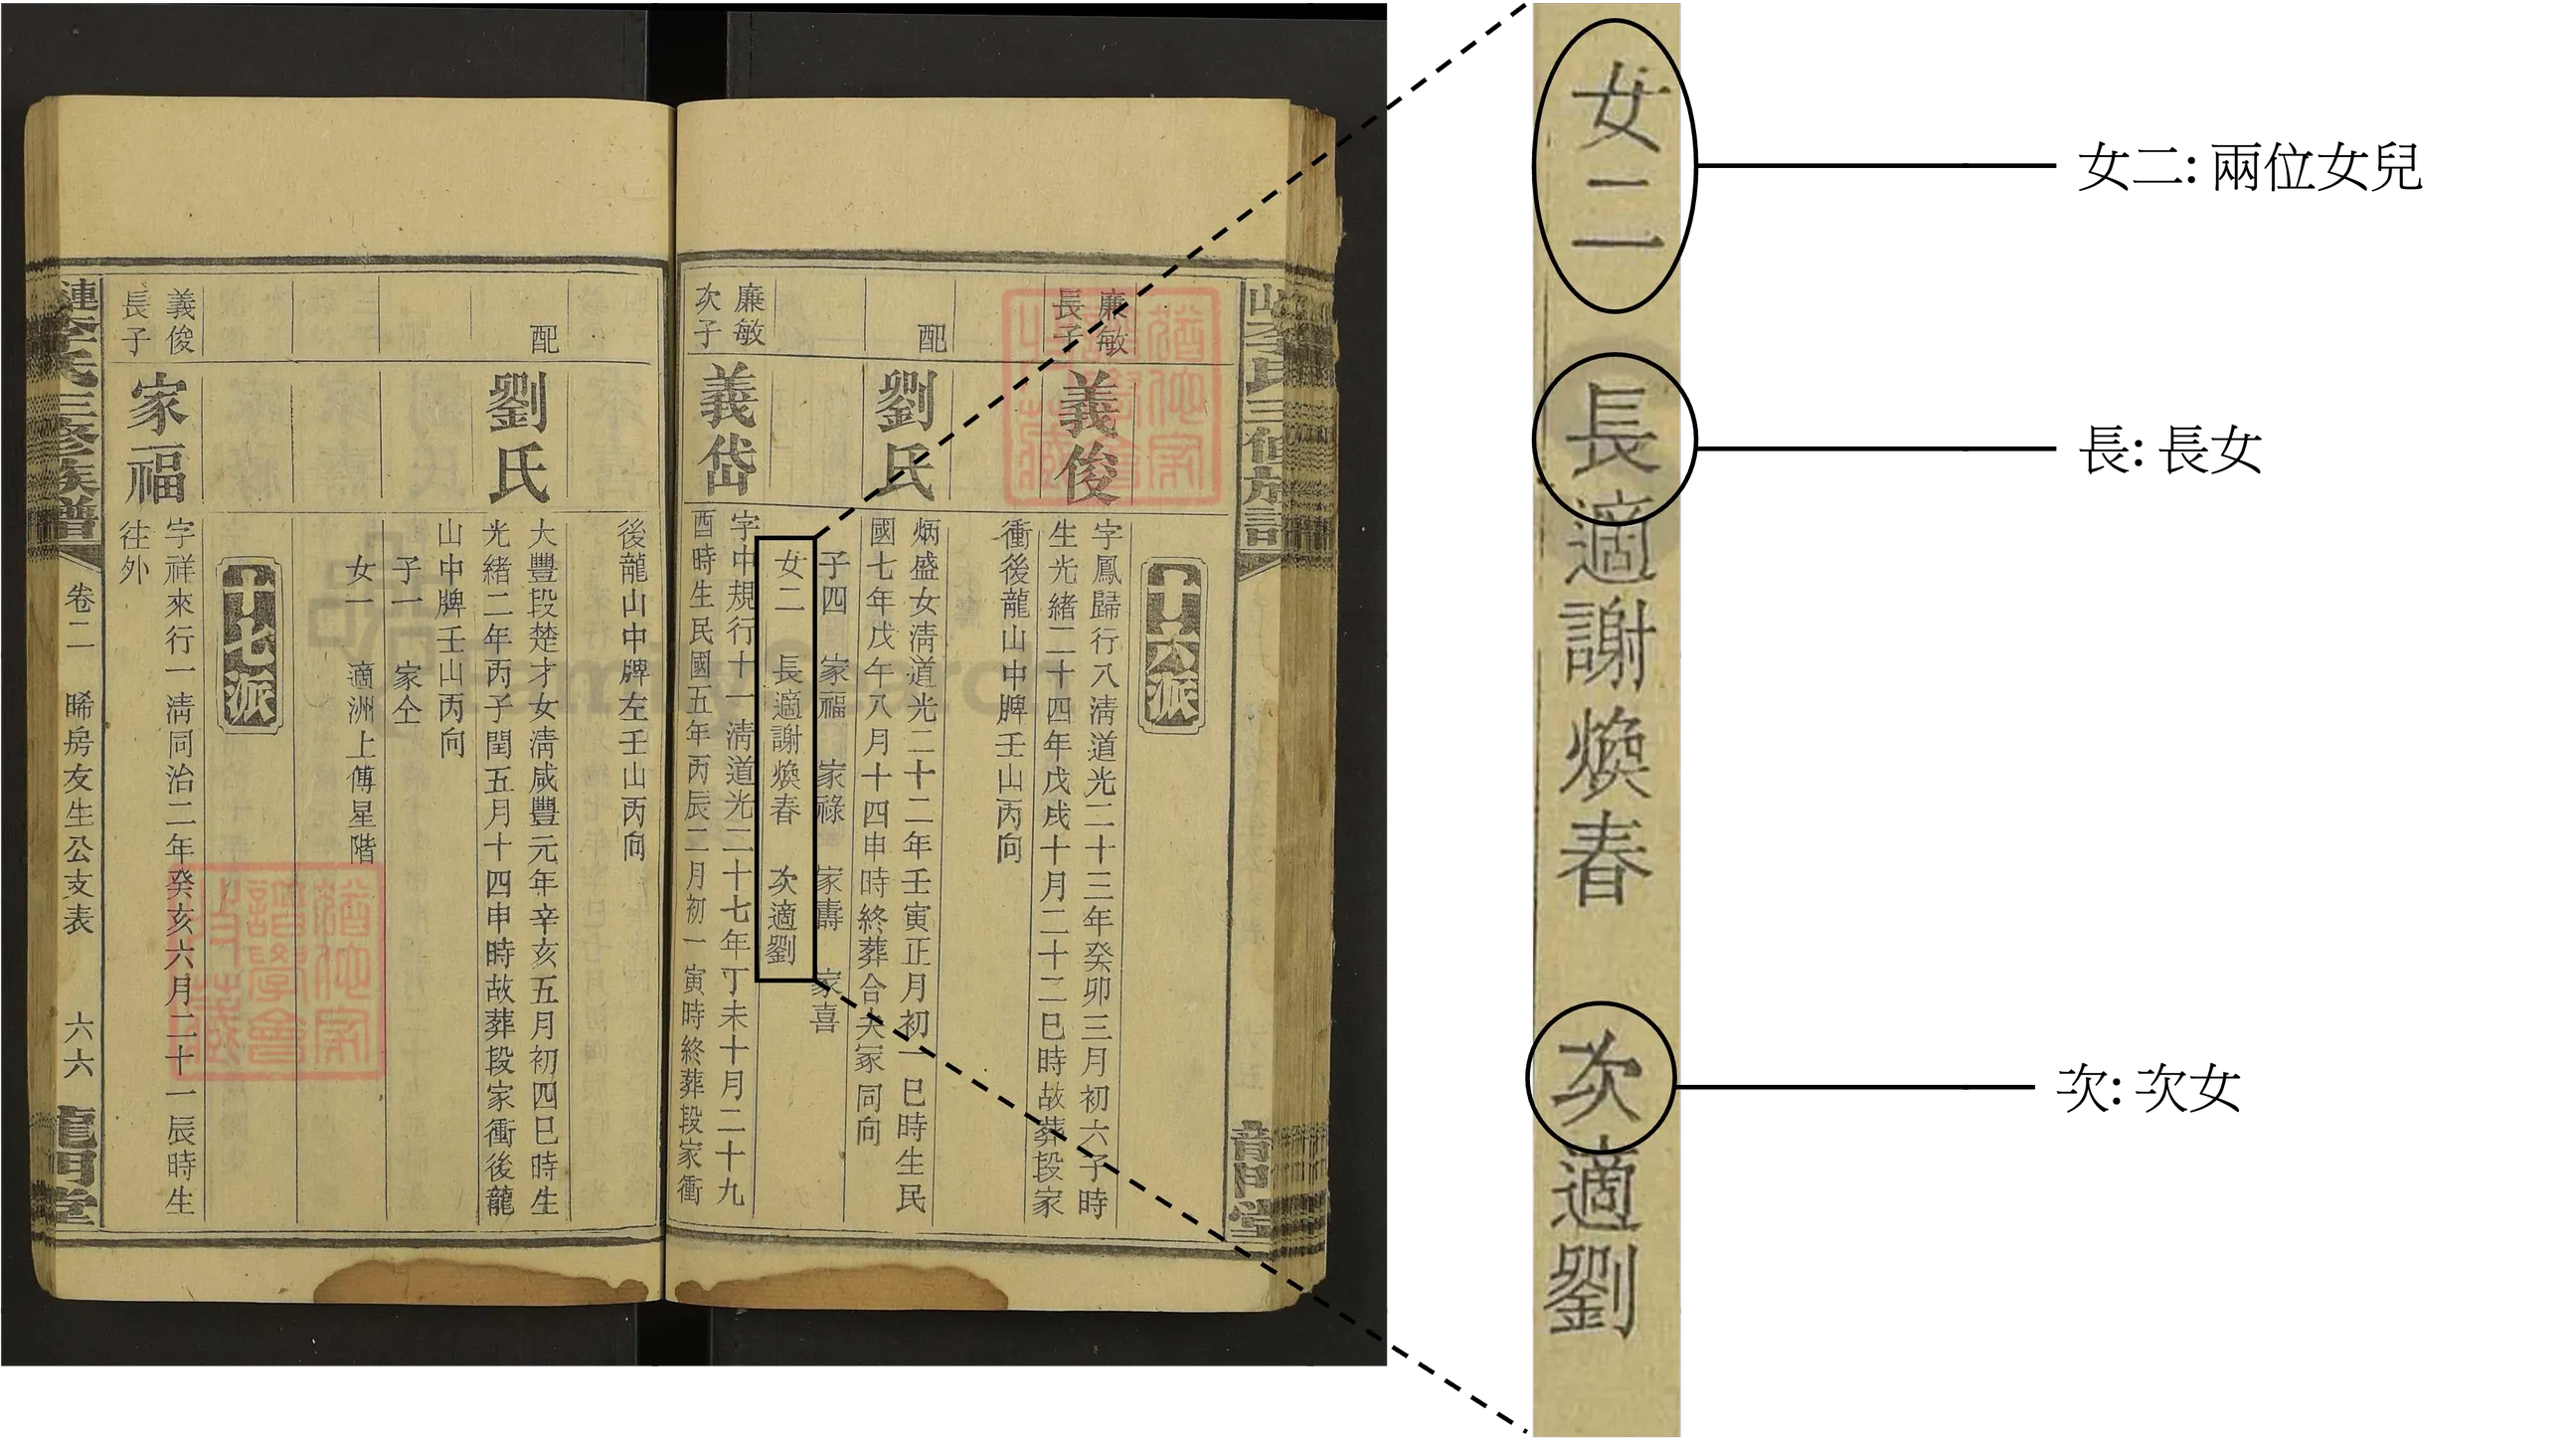 廉敏
長子
義俊
配
劉氏
廉敏
次子
義岱
十六派
字鳳歸行八淸道光二十三年癸卯三月初六子時
生光緒二十四年戊戌十月二十二巳時故葬段家
衝後龍山中牌壬山丙向
炳盛女淸道光二十二年壬寅正月初一巳時生民
國七年戊午八月十四申時終葬合夫冢同向
子四 家福 家祿 家壽 家喜
女二 長適謝煥春 次適劉
字中規行十一淸道光二十七年丁未十月二十九
酉時生民國五年丙辰二月初一寅時終葬段家衝
配
劉氏
義俊
長子
家福
後龍山中牌左壬山丙向
大豐段楚才女淸咸豐元年辛亥五月初四巳時生
光緒二年丙子閏五月十四申時故葬段家衝後龍
山中牌壬山丙向
子一 家仝
女一 適洲上傅星階
十七派
字祥來行一淸同治二年癸亥六月二十一辰時生
往外
漣李氏三修族譜
卷二 晞房友生公支表 六六
龍門堂
女二 長適謝煥春 次適劉
女二: 兩位女兒
長: 長女
次: 次女